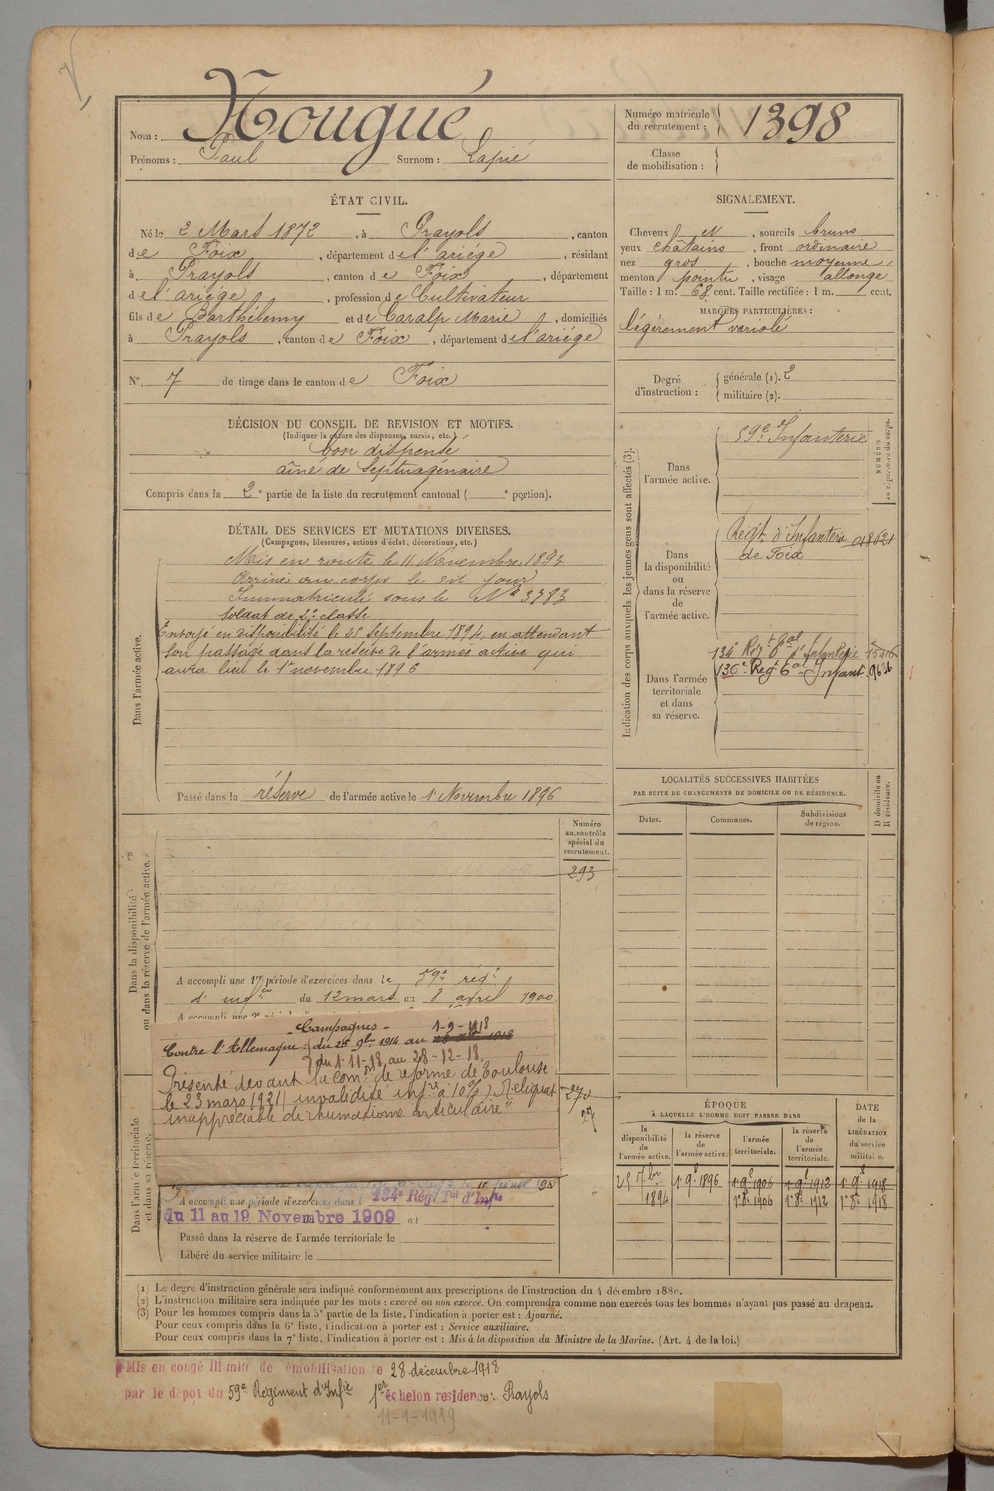 Nom : Nougué
Prénoms : Paul Surnom : Lapié
Numéro matricule du recrutement : 1398
Classe de mobilisation :
ÉTAT CIVIL.
Né le 2 Mars 1872, à Prayols, canton
de Foix, département de l'ariége, résidant
à Prayols, canton de Foix, département
de l'ariége, profession de Cultivateur
fils de Barthélemy et de Caralp Marie, domiciliés
à Prayols, canton de Foix, département de l'ariége
N° 7 de tirage dans le canton de Foix
SIGNALEMENT.
Cheveux N, sourcils bruns
yeux châtains, front ordinaire
nez gros, bouche moyenne
menton pointu, visage allongé
Taille : 1 m. 68 cent. Taille rectifiée : 1 m. cent.
MARQUES PARTICULIÈRES :
légèrement variolé
Degré d'instruction :
générale (1). 2
militaire (2).
DÉCISION DU CONSEIL DE REVISION ET MOTIFS.
(Indiquer la nature des dispenses, sursis, etc.)
bon dispensé
aîné de Septuagénaire
Compris dans la 2e partie de la liste du recrutement cantonal ( e portion).
DÉTAIL DES SERVICES ET MUTATIONS DIVERSES.
(Campagnes, blessures, actions d'éclat, décorations, etc.)
Dans l'armée active.
Mis en route le 11 Novembre 1893
Arrivé au corps le dit jour
Immatriculé sous le N° 3783
soldat de 2e classe
Envoyé en disponibilité le 25 Septembre 1894, en attendant
son passage dans la réserve de l'armée active qui
aura lieu le 1er novembre 1896
Passé dans la réserve de l'armée active le 1 Novembre 1896
Indication des corps auxquels les jeunes gens sont affectés (3).
NUMÉRO au répertoire du corps.
Dans l'armée active.
59e Infanterie
Dans la disponibilité ou dans la réserve de l'armée active.
Régt d'Infanterie 018621
de Foix
Dans l'armée territoriale et dans sa réserve.
134e Régt tal d'Infanterie
136e Régt tal Infant.
LOCALITÉS SUCCESSIVES HABITÉES
PAR SUITE DE CHANGEMENTS DE DOMICILE OU DE RÉSIDENCE.
Dates. Communes. Subdivisions de région. D domicile ou R résidence.
Dans la disponibilité ou dans la réserve de l'armée active.
Numéro au contrôle spécial du recrutement.
293
A accompli une 1re période d'exercices dans le 59e régt
d'infie du 12 mars au 8 avril 1900
Campagnes
Contre l'Allemagne : du 25 9bre 1914 au 1-9-1918
du 1-11-18 au 28-12-18
Présenté devant la comon de réforme de Toulouse
le 23 mars 1921, invalidité infre à 10% "Reliquat
inappréciable de rhumatisme articulaire"
270
Dans l'armée territoriale et dans sa réserve.
A accompli une période d'exercices dans le 134e Régt Tal d'Infie
du 11 au 19 Novembre 1909 au
Passé dans la réserve de l'armée territoriale le
Libéré du service militaire le
ÉPOQUE
À LAQUELLE L'HOMME DOIT PASSER DANS
la disponibilité de l'armée active. la réserve de l'armée active. l'armée territoriale. la réserve de l'armée territoriale.
DATE de la LIBÉRATION du service militaire.
25 7bre 1894 1 9e 1896 1 9e 1906 1 9e 1912 1 9e 1918
1 8e 1906 1 8e 1912 1 8e 1918
(1) Le degré d'instruction générale sera indiqué conformément aux prescriptions de l'instruction du 4 décembre 1889.
(2) L'instruction militaire sera indiquée par les mots : exercé ou non exercé. On comprendra comme non exercés tous les hommes n'ayant pas passé au drapeau.
(3) Pour les hommes compris dans la 5e partie de la liste, l'indication à porter est : Ajourné.
Pour ceux compris dans la 6e liste, l'indication à porter est : Service auxiliaire.
Pour ceux compris dans la 7e liste, l'indication à porter est : Mis à la disposition du Ministre de la Marine. (Art. 4 de la loi.)
Mis en congé illimité de démobilisation le 28 décembre 1918
par le dépôt du 59e Régiment d'Infie 1er échelon résidence: Prayols
11-1-1919